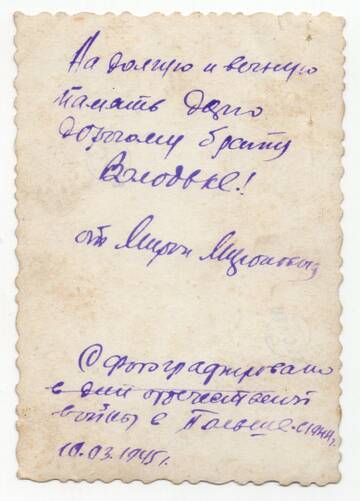 На долгую и вечную
память даю
дорогому брату
Володьке!
от Мирон
Сфотографировано
в дни отечественной
войны в Польше
10.03.1945 г.